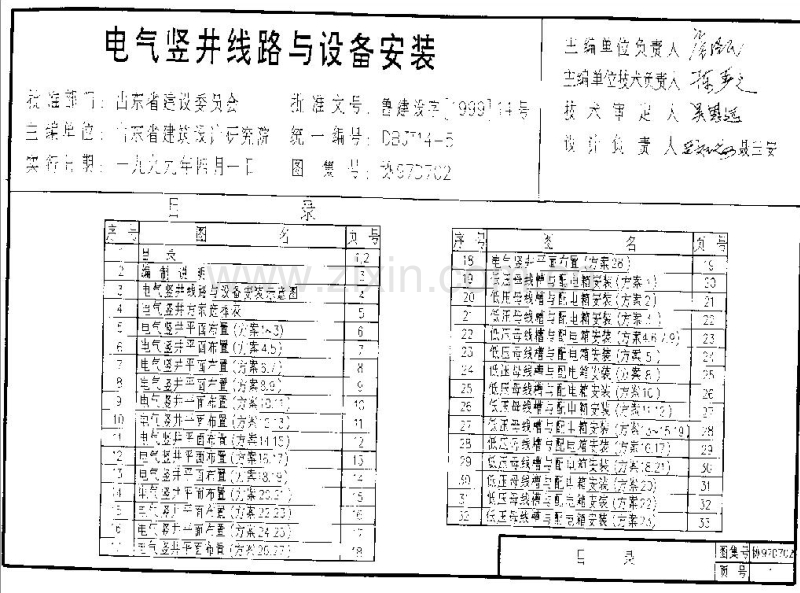 电气竖井线路与设备安装
批准部门：山东省建设委员会 批准文号：鲁建设字[1999]14号
主编单位：山东省建筑设计研究院 统一编号：DBJT14-5
实行日期：一九九九年四月一日 图集号：协97D702
主编单位负责人
主编单位技术负责人
技术审定人
设计负责人
目录
序号 图名 页号
1 目录 1,2
2 编制说明 3
3 电气竖井线路与设备安装示意图 4
4 电气竖井方案选择表 5
5 电气竖井平面布置(方案1~3) 6
6 电气竖井平面布置(方案4,5) 7
7 电气竖井平面布置(方案6,7) 8
8 电气竖井平面布置(方案8,9) 9
9 电气竖井平面布置(方案10,11) 10
10 电气竖井平面布置(方案12,13) 11
11 电气竖井平面布置(方案14,15) 12
12 电气竖井平面布置(方案16,17) 13
13 电气竖井平面布置(方案18,19) 14
14 电气竖井平面布置(方案20,21) 15
15 电气竖井平面布置(方案22,23) 16
16 电气竖井平面布置(方案24,25) 17
17 电气竖井平面布置(方案26,27) 18
序号 图名 页号
18 电气竖井平面布置(方案28) 19
19 低压母线槽与配电箱安装(方案1) 20
20 低压母线槽与配电箱安装(方案2) 21
21 低压母线槽与配电箱安装(方案) 22
22 低压母线槽与配电箱安装(方案4,6,7,9) 23
23 低压母线槽与配电箱安装(方案5) 24
24 低压母线槽与配电箱安装(方案8) 25
25 低压母线槽与配电箱安装(方案10) 26
26 低压母线槽与配电箱安装(方案11,12) 27
27 低压母线槽与配电箱安装(方案13~15,19) 28
28 低压母线槽与配电箱安装(方案16,17) 29
29 低压母线槽与配电箱安装(方案18,21) 30
30 低压母线槽与配电箱安装(方案20) 31
31 低压母线槽与配电箱安装(方案22) 32
32 低压母线槽与配电箱安装(方案23) 33
www.zixin.com
目录 图集号 协97D702
页号